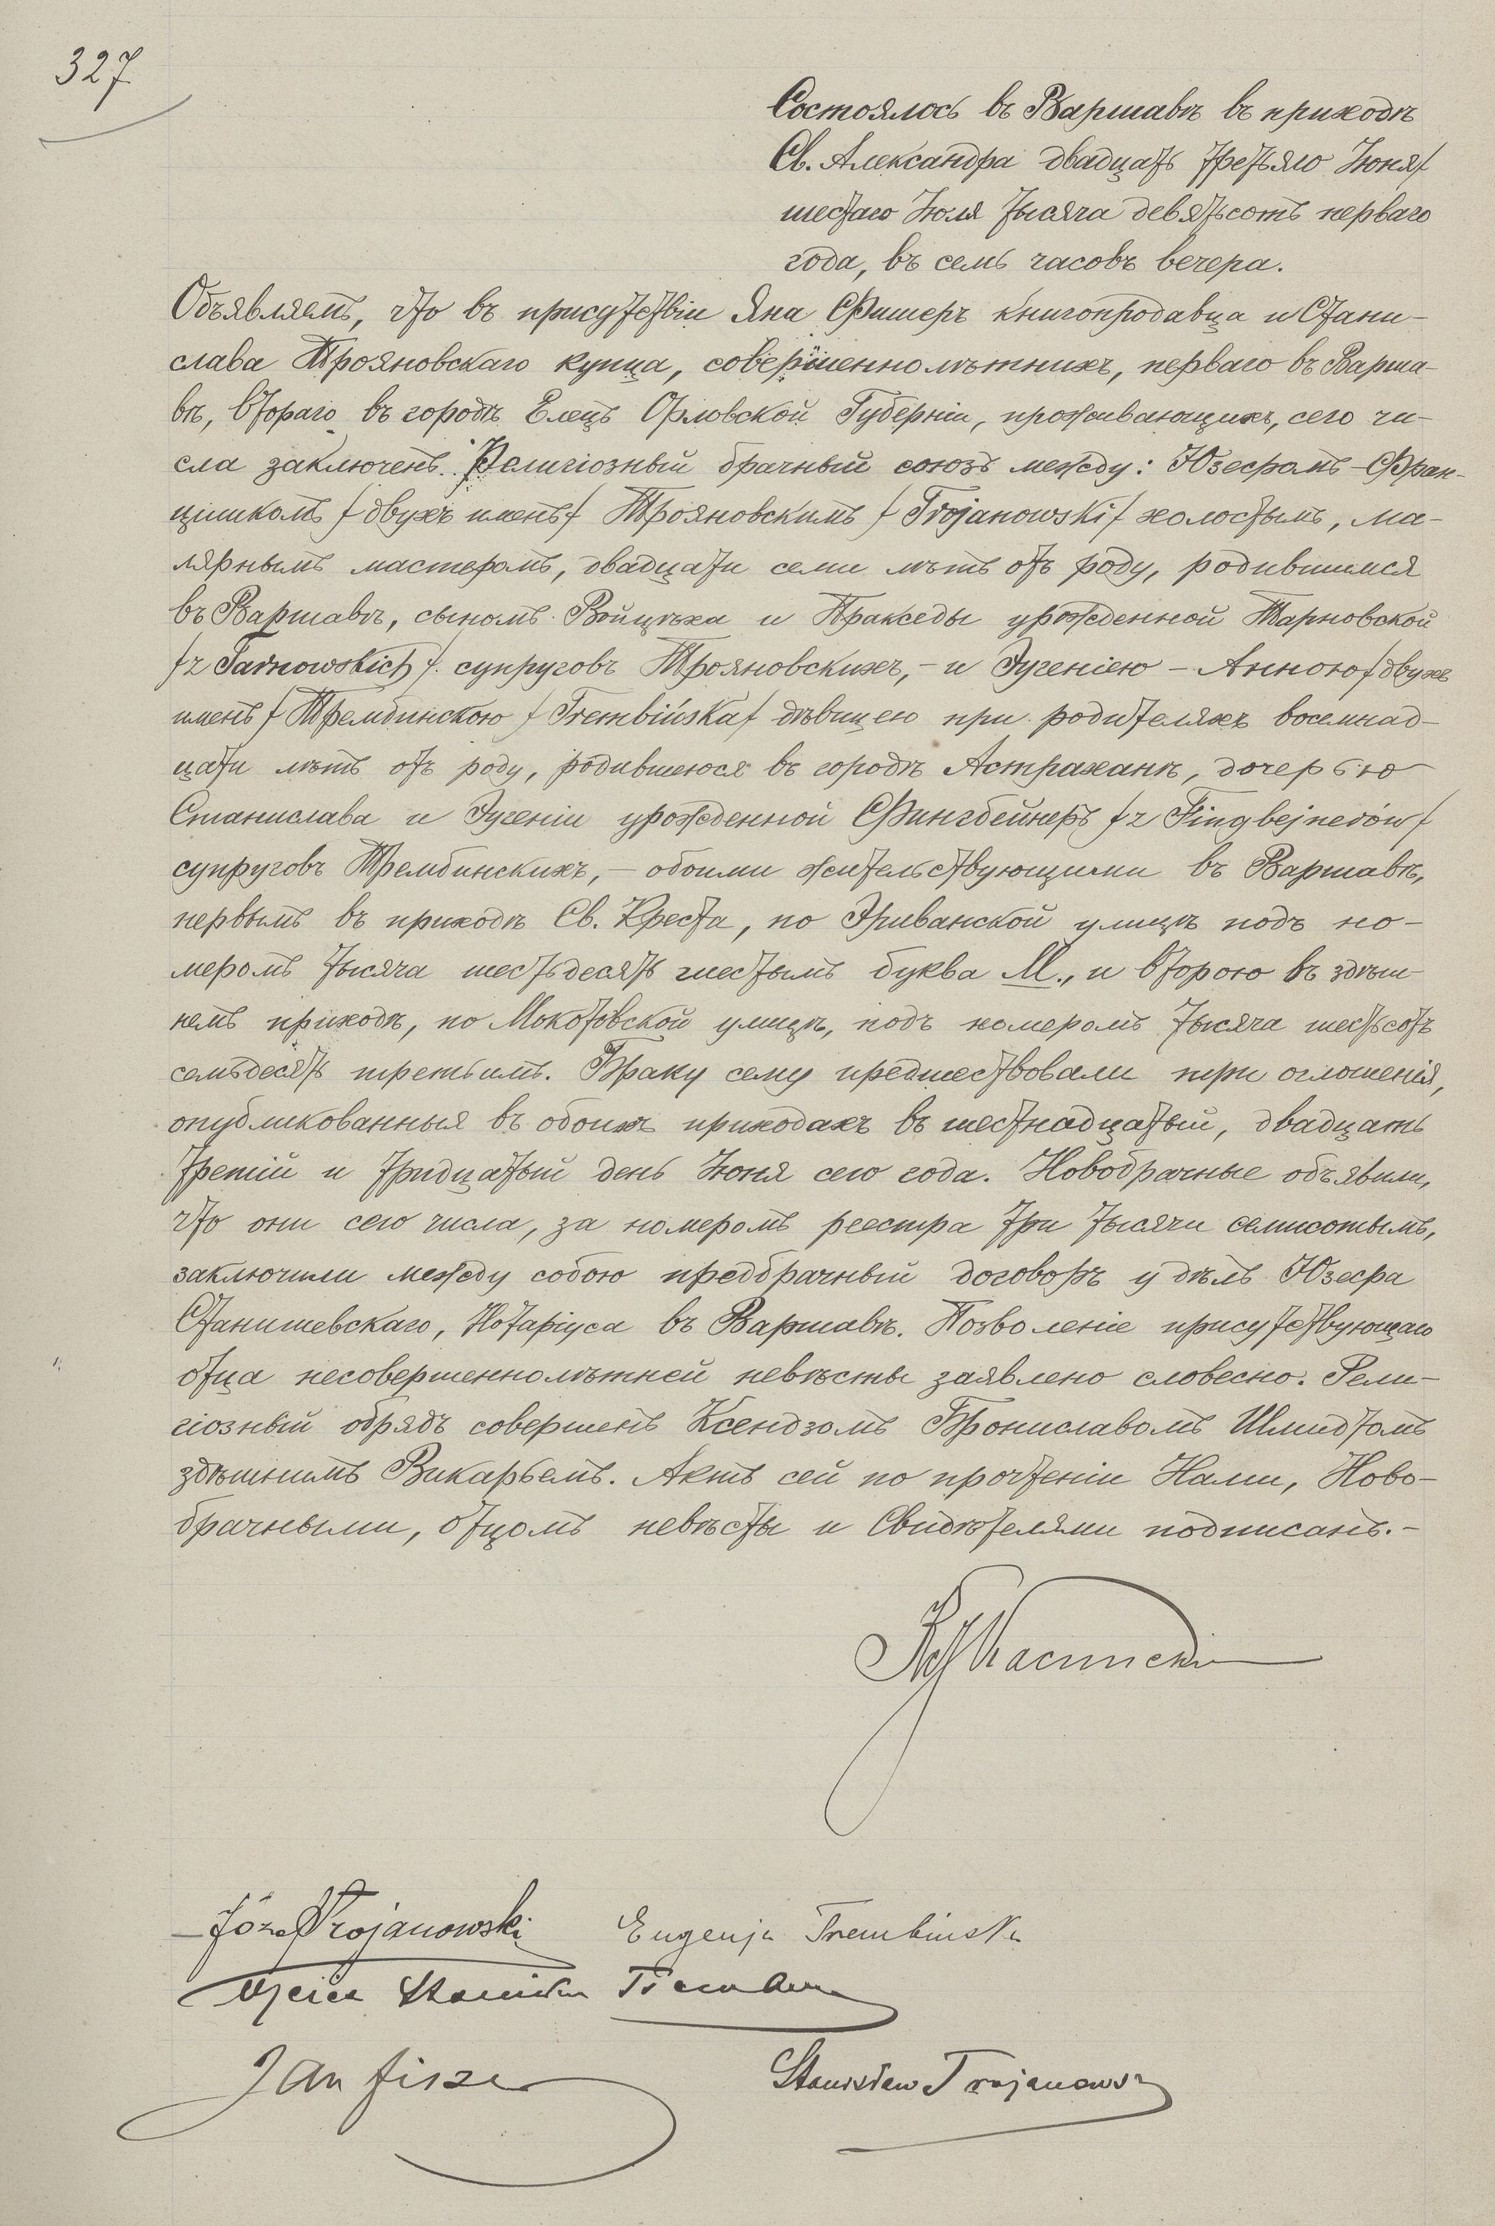 327
Состоялось въ Варшавѣ въ приходѣ
Св. Александра двадцать третьяго Іюня/
шестаго Іюля тысяча девятьсотъ перваго
года, въ семь часовъ вечера.
Объявляемъ, что въ присутствіи Яна Фишеръ книгопродавца и Стани-
слава Трояновскаго купца, совершеннолѣтнихъ, перваго въ Варша-
вѣ, втораго въ городѣ Елецъ Орловской Губерніи, проживающихъ, сего чи-
сла заключенъ Религіозный брачный союзъ между: Юзефомъ-Фран-
цишкомъ /двухъ именъ/ Трояновскимъ /Trojanowski/ холостымъ, ма-
лярнымъ мастеромъ, двадцати семи лѣтъ отъ роду, родившимся
въ Варшавѣ, сыномъ Войцѣха и Пракседы урожденной Тарновской
/z Tarnowskich/ супруговъ Трояновскихъ, - и Эугеніею - Анною /двухъ
именъ/ Трембинскою /Trembińska/ дѣвицею при родителяхъ восемнад-
цати лѣтъ отъ роду, родившеюся въ городѣ Астрахань, дочерью
Станислава и Эугеніи урожденной Фингбейнеръ /z Fingbejnerów/
супруговъ Трембинскихъ, - обоими жительствующими въ Варшавѣ,
первымъ въ приходѣ Св. Креста, по Эриванской улицѣ подъ но-
меромъ тысяча шестьдесятъ шестымъ буква М., и второю въ здѣш-
немъ приходѣ, по Мокотовской улицѣ, подъ номеромъ тысяча шестьсотъ
семьдесятъ третьимъ. Браку сему предшествовали три оглошенія,
опубликованныя въ обоихъ приходахъ въ шестнадцатый, двадцать
третій и тридцатый день Іюня сего года. Новобрачные объявили,
что они сего числа, за номеромъ реестра три тысячи семисотымъ,
заключили между собою предбрачный договоръ у дѣлъ Юзефа
Станишевскаго, Нотаріуса въ Варшавѣ. Позволеніе присутствующаго
отца несовершеннолѣтней невѣсты заявлено словесно. Рели-
гіозный обрядъ совершенъ Ксендзомъ Брониславомъ Шмидтомъ
здѣшнимъ Викарьемъ. Актъ сей по прочтеніи Нами, Ново-
брачными, отцомъ невѣсты и Свидѣтелями подписанъ. -
Józef Trojanowski Eugenja Trembińska
Ojciec
Jan Fiszer Stanisław Trojanowski